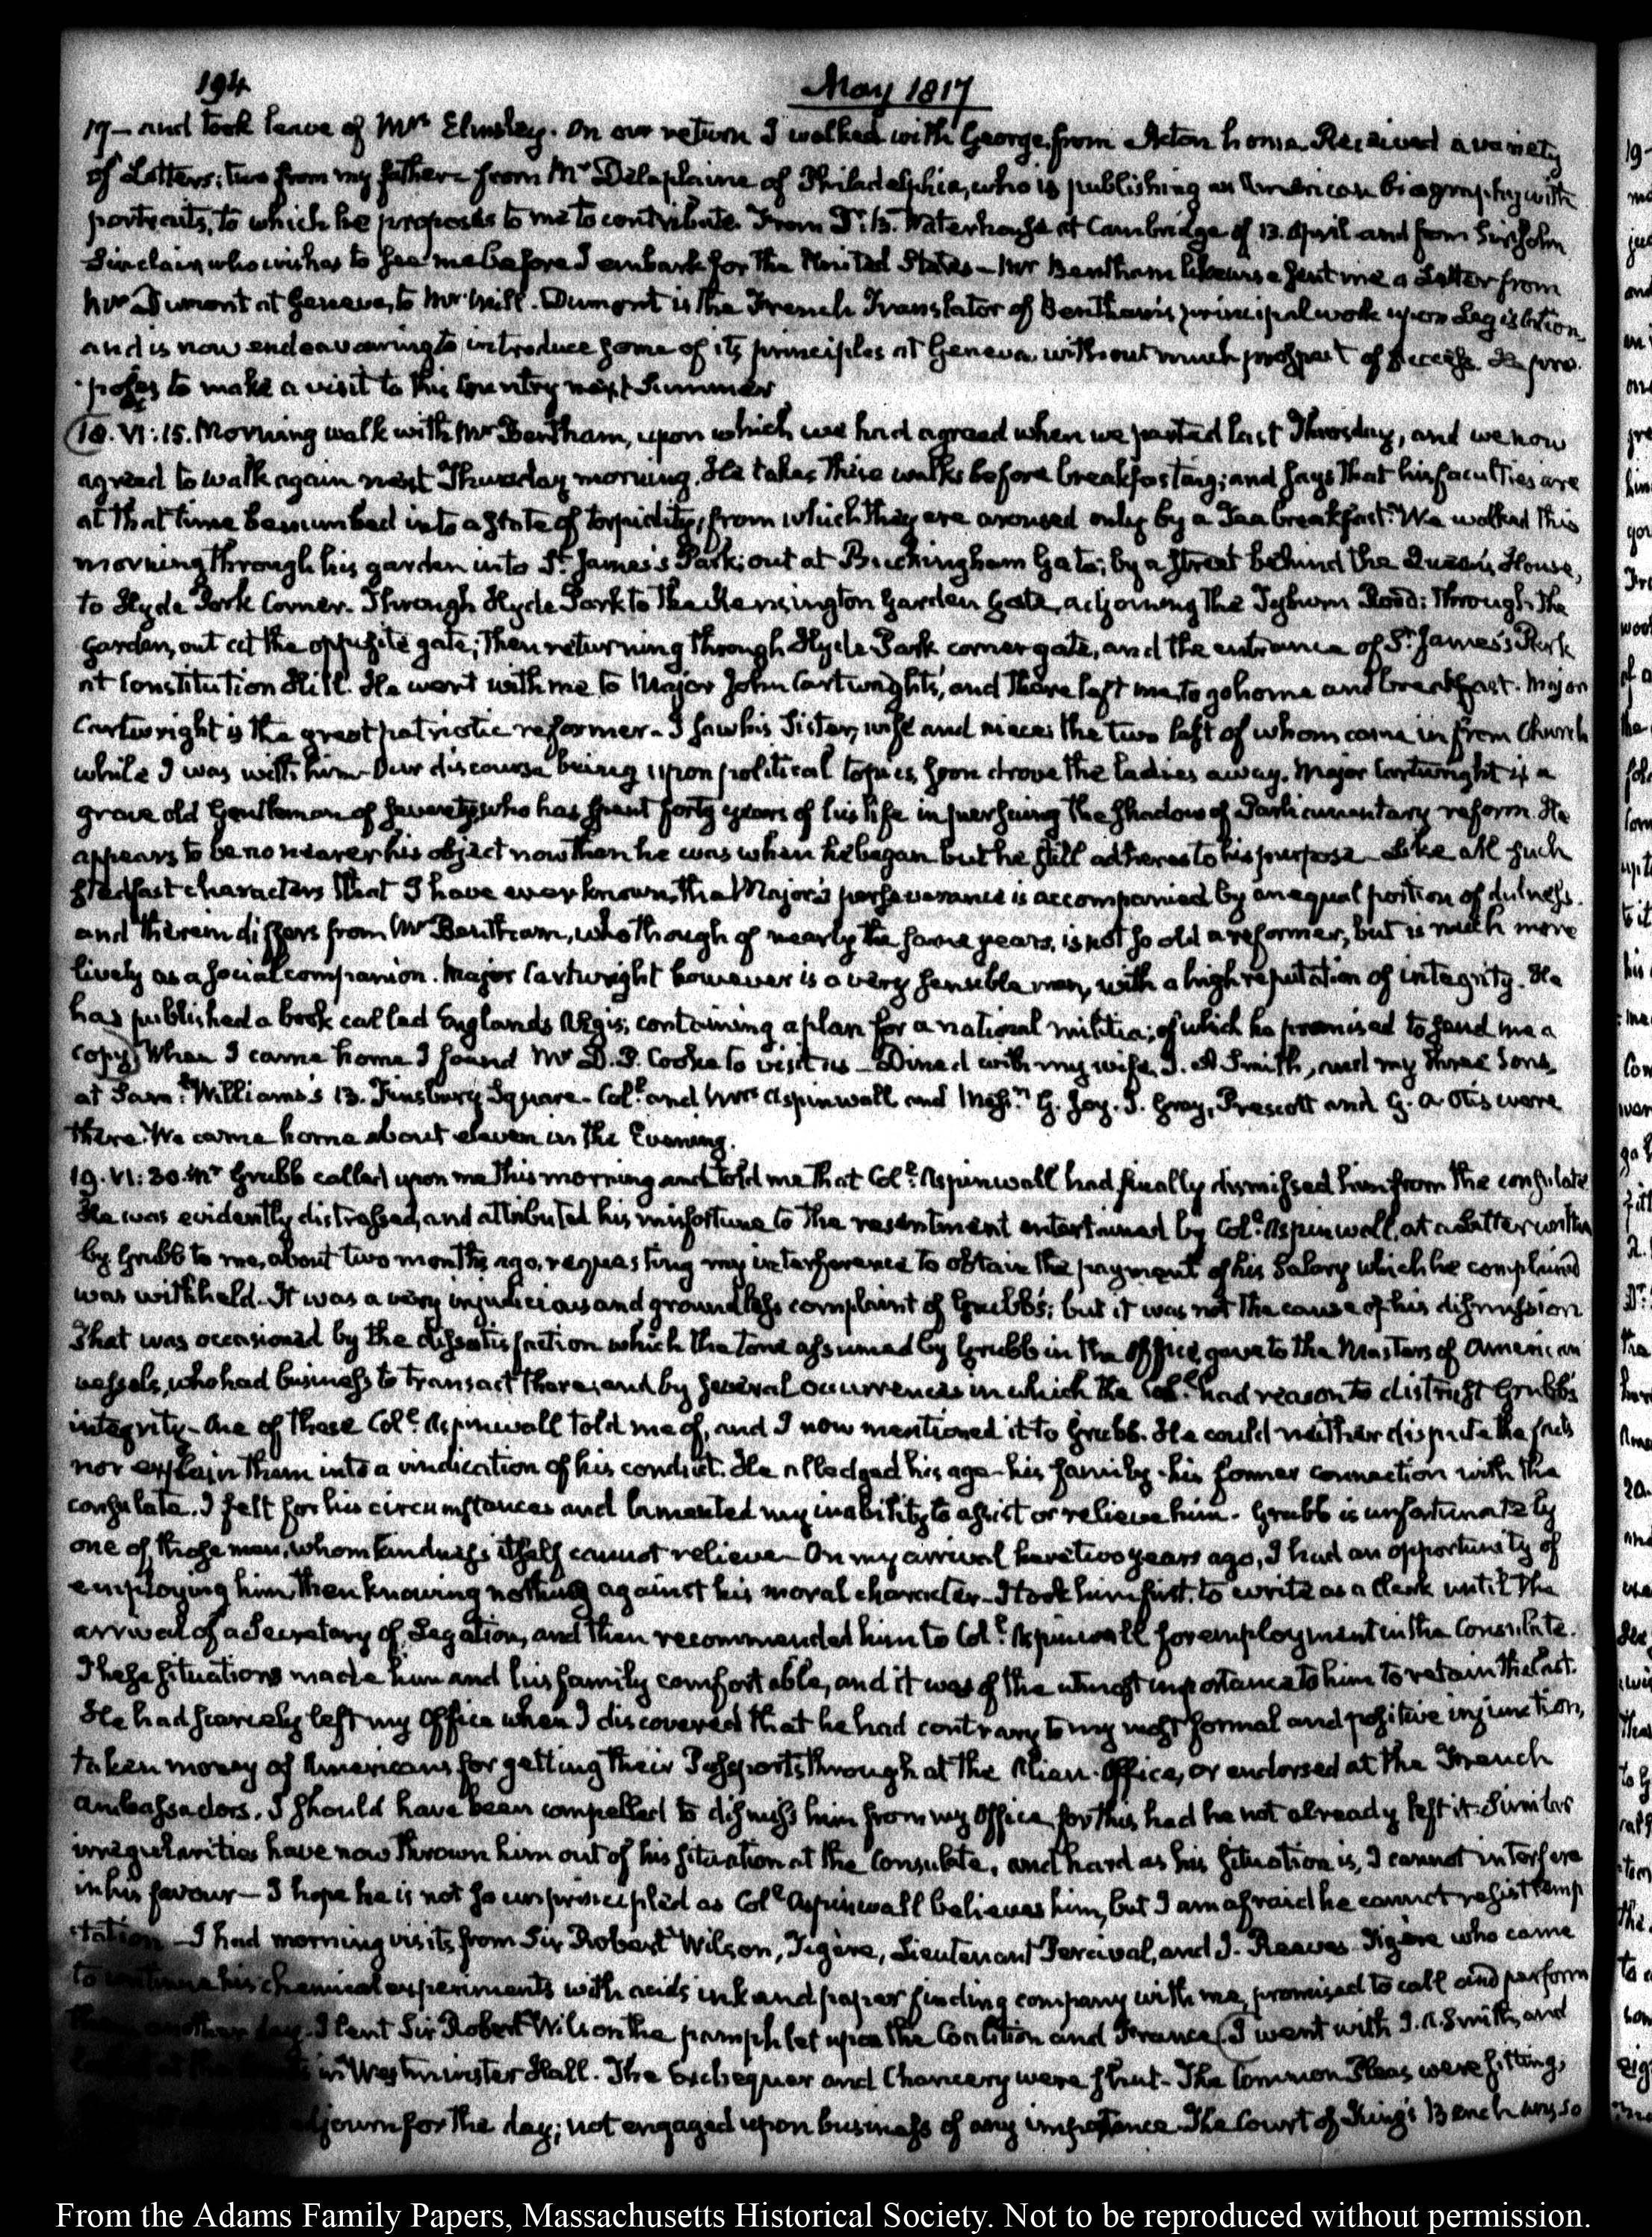 194
May 1817
17 — and took leave of Mrs Elmsley. On our return I walked with George, from Acton home. Received a variety
of Letters; two from my father — from Mr Delaplaine of Philadelphia, who is publishing an American biography with
portraits, to which he proposes to me to contribute. From Dr. B. Waterhouse at Cambridge of 13. April and from Sir John
Sinclair, who wishes to see me before I embark for the United States — Mr Bentham likewise sent me a Letter from
Mr Dumont at Geneva, to Mr Mill. Dumont is the French Translator of Bentham's principal work upon Legislation,
and is now endeavouring to introduce some of its principles at Geneva, without much prospect of success. He pro-
poses to make a visit to this Country next Summer
18. VI: 15. Morning walk with Mr Bentham, upon which we had agreed when we parted last Thursday, and we now
agreed to walk again next Thursday morning. He takes these walks before breakfasting; and says that his faculties are
at that time benumbed into a state of torpidity, from which they are aroused only by a Tea breakfast. We walked this
morning through his garden into St. James's Park; out at Buckingham Gate; by a street behind the Queen's House,
to Hyde Park Corner. Through Hyde Park to the Kensington Garden Gate, adjoining the Tyburn Road: through the
Garden, out at the opposite gate; then returning through Hyde Park corner gate, and the entrance of St. James's Park
at Constitution Hill. He went with me to Major John Cartwright's, and there left me, to go home and breakfast. Major
Cartwright is the great patriotic reformer — I saw his Sister, wife and niece; the two last of whom came in from Church
while I was with him — Our discourse being upon political topics, soon drove the ladies away. Major Cartwright is a
grave old Gentleman of seventy, who has spent forty years of his life in pursuing the shadow of Parliamentary reform. He
appears to be no nearer his object now than he was when he began but he still adheres to his purpose — Like all such
stedfast characters that I have ever known, the Major's perseverance is accompanied by an equal portion of dulness.
and therein differs from Mr Bentham, who though of nearly the same years, is not so old a reformer, but is much more
lively as a social companion. Major Cartwright however is a very sensible man, with a high reputation of integrity. He
has published a book called Englands Ægis; containing a plan for a national militia; of which he promised to send me a
copy. When I came home I found Mr D. P. Cooke to visit us — Dined with my wife, J. A. Smith, and my three Sons,
at Saml. Williams's 13. Finsbury Square — Coll. and Mrs Aspinwall and Messrs G. Joy. J. Gray, Prescott and G. A Otis were
there. We came home about eleven in the Evening.
19. VI: 30. Mr Grubb called upon me this morning and told me that Coll. Aspinwall had finally dismissed him from the consulate
He was evidently distressed, and attributed his misfortune to the resentment entertained by Coll. Aspinwall, at a Letter written
by Grubb to me, about two months ago, requesting my interference to obtain the payment of his Salary which he complained
was withheld. It was a very injudicious and groundless complaint of Grubb's; but it was not the cause of his dismission
That was occasioned by the dissatisfaction which the tone assumed by Grubb in the Office, gave to the Masters of American
vessels, who had business to transact there, and by several occurrences in which the Coll. had reason to distrust Grubb's
integrity — One of these Coll. Aspinwall told me of, and I now mentioned it to Grubb. He could neither dispute the facts
nor explain them into a vindication of his conduct. He alledged his age — his family — his former connection with the
consulate. I felt for his circumstances and lamented my inability to assist or relieve him. Grubb is unfortunately
one of those men, whom kindness itself cannot relieve — On my arrival here two years ago, I had an opportunity of
employing him, then knowing nothing against his moral character — I took him first, to write as a clerk until the
arrival of a Secretary of Legation, and then recommended him to Coll. Aspinwall for employment in the Consulate.
These situations made him and his family comfortable, and it was of the utmost importance to him to retain the last.
He had scarcely left my Office when I discovered that he had contrary to my most formal and positive injunction,
taken money of Americans for getting their Passports through at the Alien-Office, or endorsed at the French
ambassadors. I should have been compelled to dismiss him from my Office for this, had he not already left it. Similar
irregularities have now thrown him out of his situation at the Consulate, and hard as his situation is, I cannot interfere
in his favour — I hope he is not so unprincipled as Coll Aspinwall believes him, but I am afraid he cannot resist temp-
tation — I had morning visits from Sir Robert Wilson, Tigère, Lieutenant Percival, and J. Reeves. Tigère who came
to continue his chemical experiments with acids ink and paper finding company with me, promised to call and perform
them another day. I lent Sir Robert Wilson the pamphlet upon the Coalition and France. I went with J. A. Smith, and
in Westminster Hall. The Exchequer and Chancery were shut — The Common Pleas were sitting;
adjourn for the day; not engaged upon business of any importance. The Court of King's Bench was so
From the Adams Family Papers, Massachusetts Historical Society. Not to be reproduced without permission.